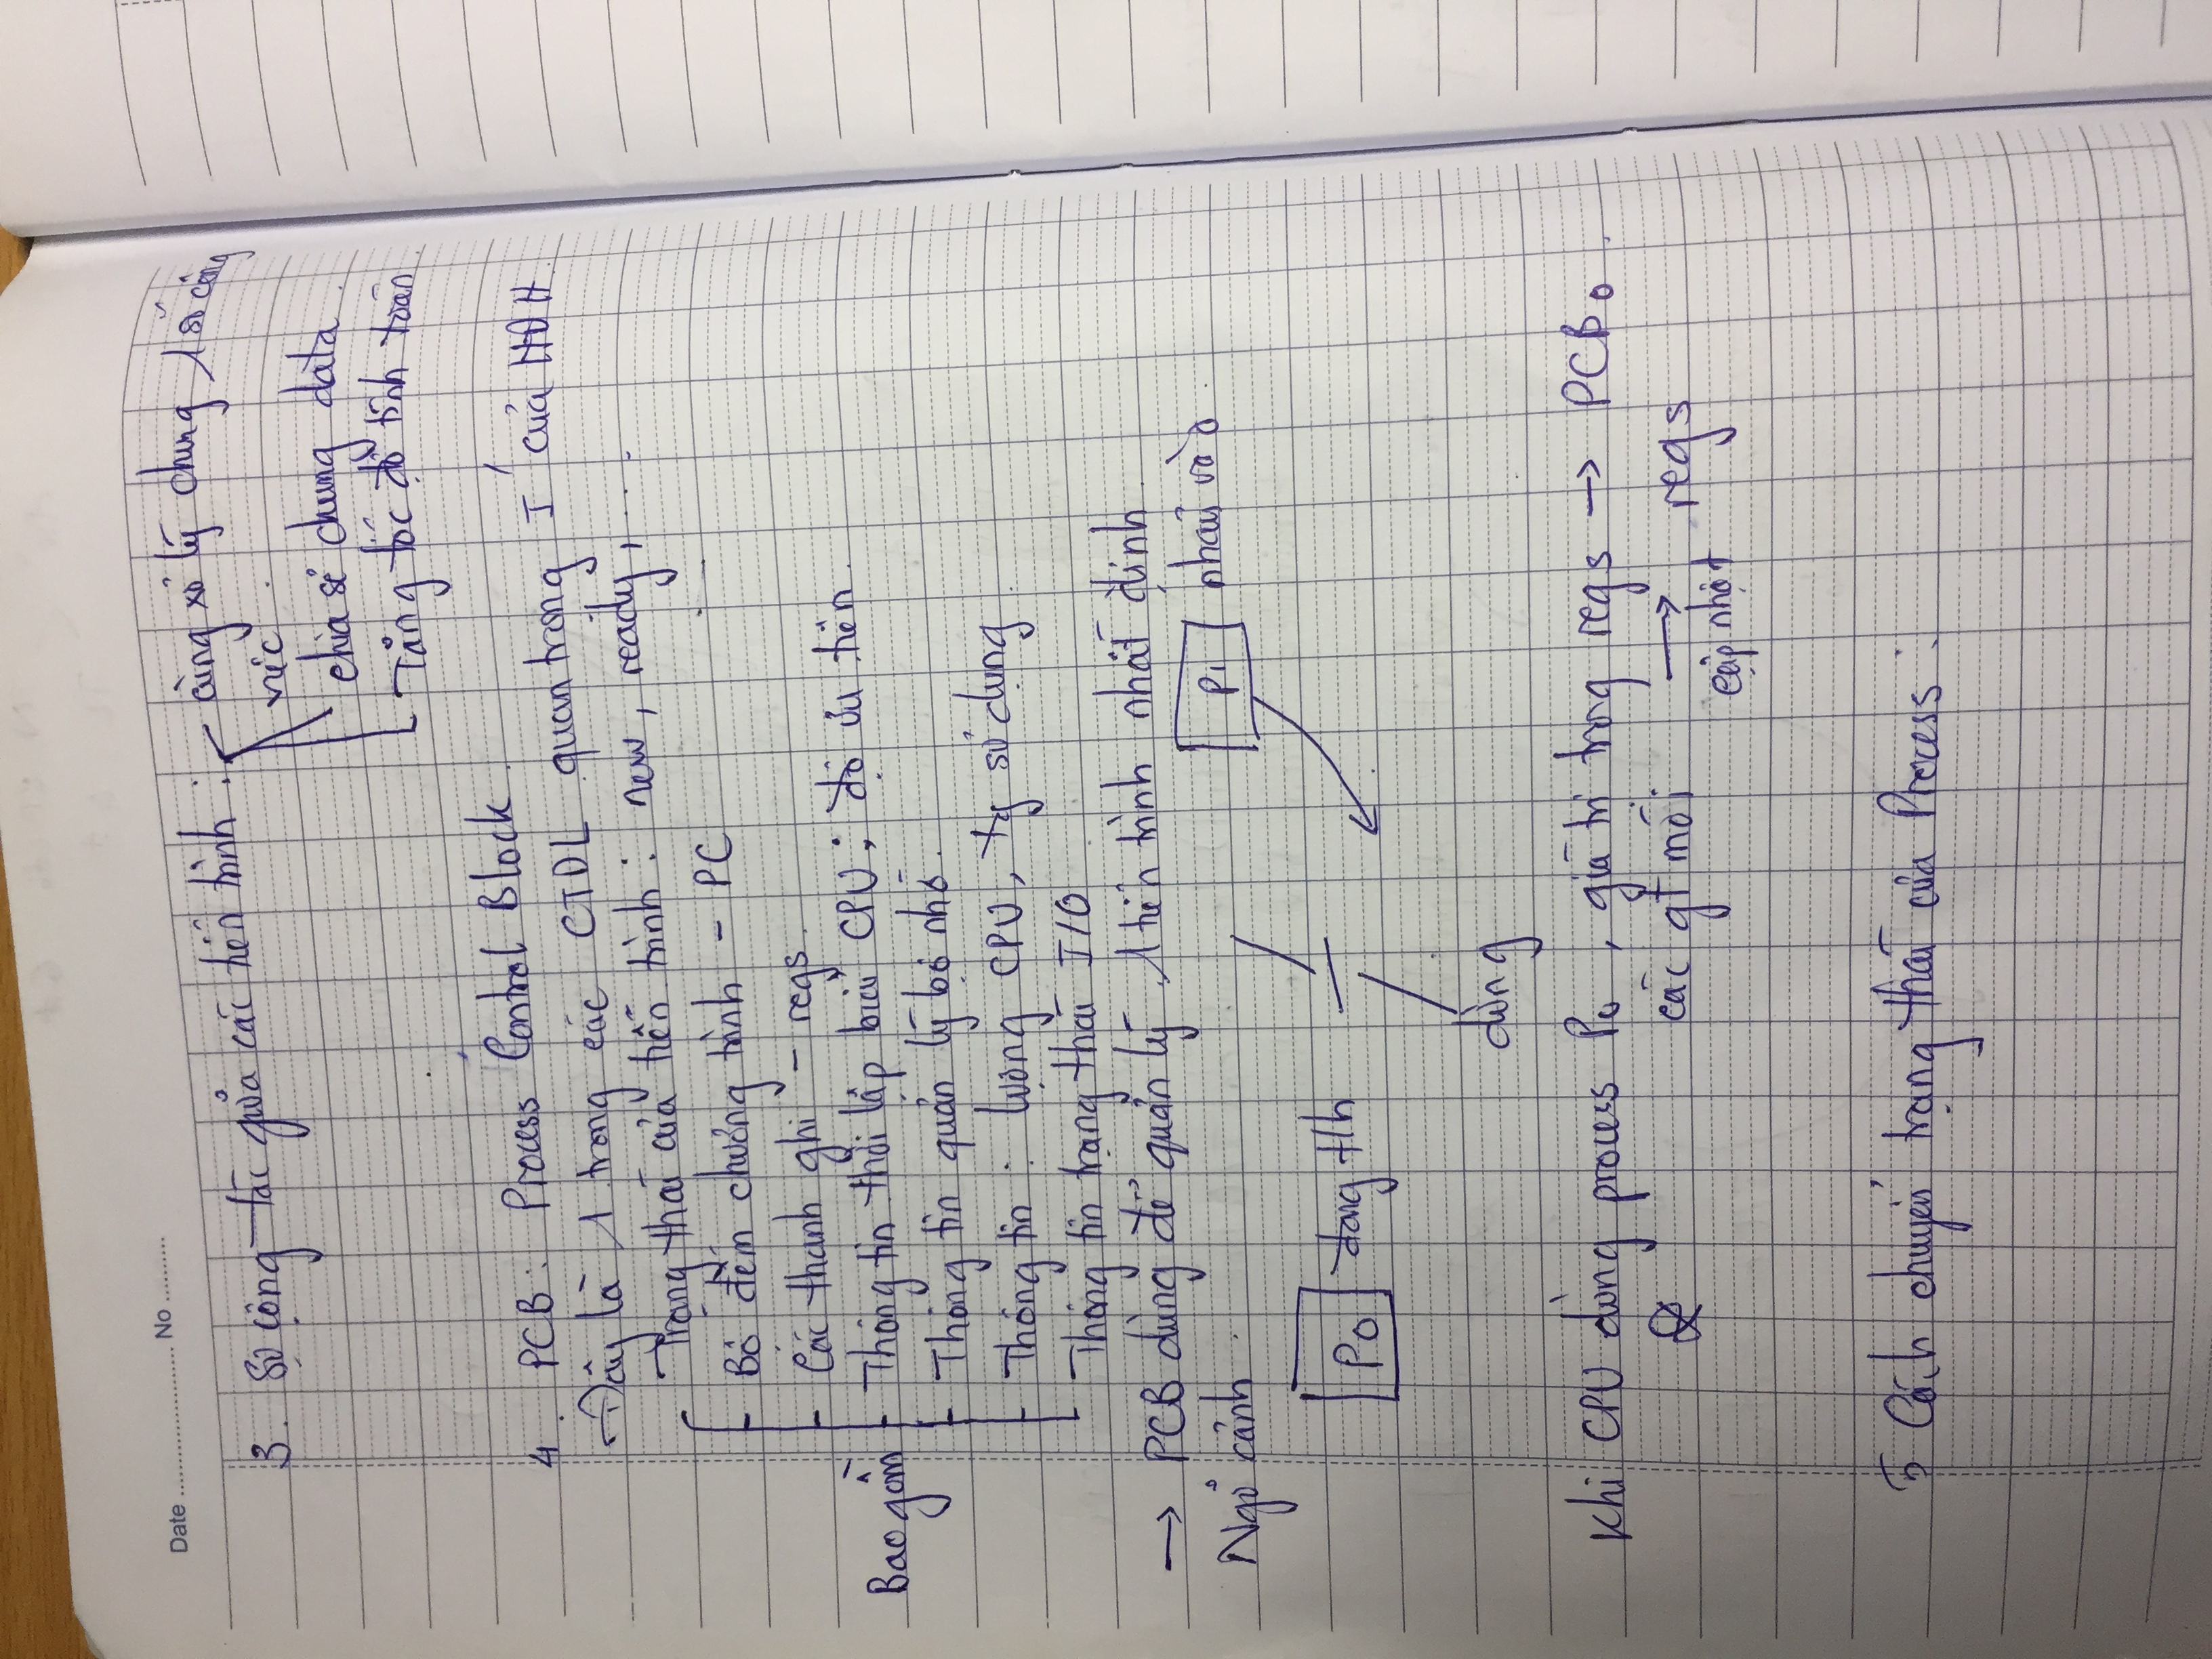 Date ........................ No ..........
3. Sự cộng tác giữa các tiến trình : cùng xử lý chung 1 số công
việc.
chia sẻ chung data.
Tăng tốc độ tính toán.
4. PCB: Process Control Block.
Đây là 1 trong các CTDL quan trọng I' của HĐH.
Trạng thái của tiến trình: new, ready, ....
- Bộ đếm chương trình - PC
- Các thanh ghi - regs.
Bao gồm - Thông tin thời lập biểu CPU; độ ưu tiên.
- Thông tin quản lý bộ nhớ.
- Thông tin : lượng CPU, tg sử dụng
Thông tin trạng thái I/O
→ PCB dùng để quản lý 1 tiến trình nhất định
Ngữ cảnh.
P1 nhảy vào.
P0 đang t/h
dừng
Khi CPU dừng process P0, giá trị trong regs → PCB0.
& các gt mới → regs
cập nhật
5 Cách chuyển trạng thái của Process :